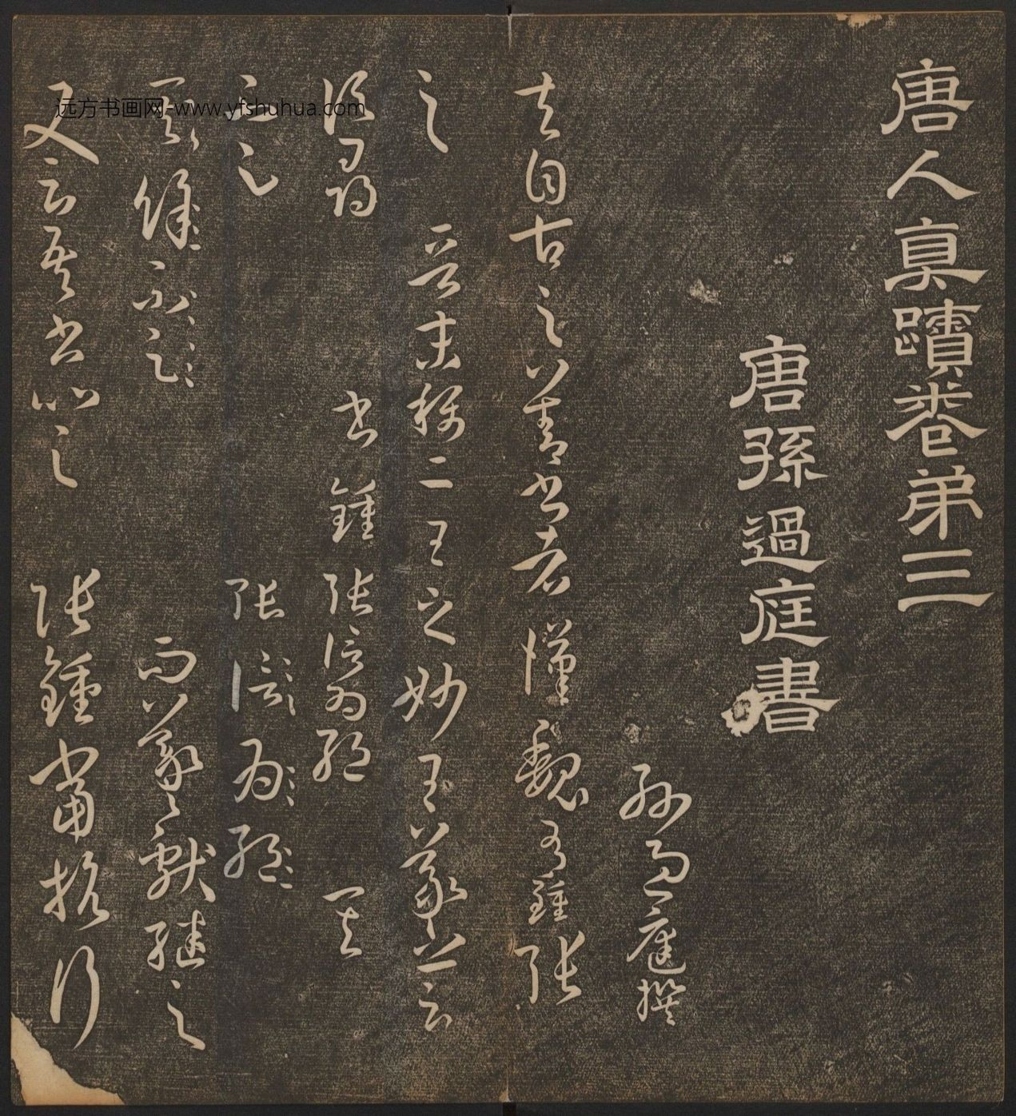 唐人真蹟卷弟三
唐孫過庭書
孫過庭撰
夫自古之善書者漢魏有鍾張
之 晉末稱二王之妙王羲之云
頃尋 書鍾張信為絕 其
張信為絕
餘不足 而羲獻繼之
又云吾書比之 張鍾當抗行
远方书画网-www.yfshuhua.com